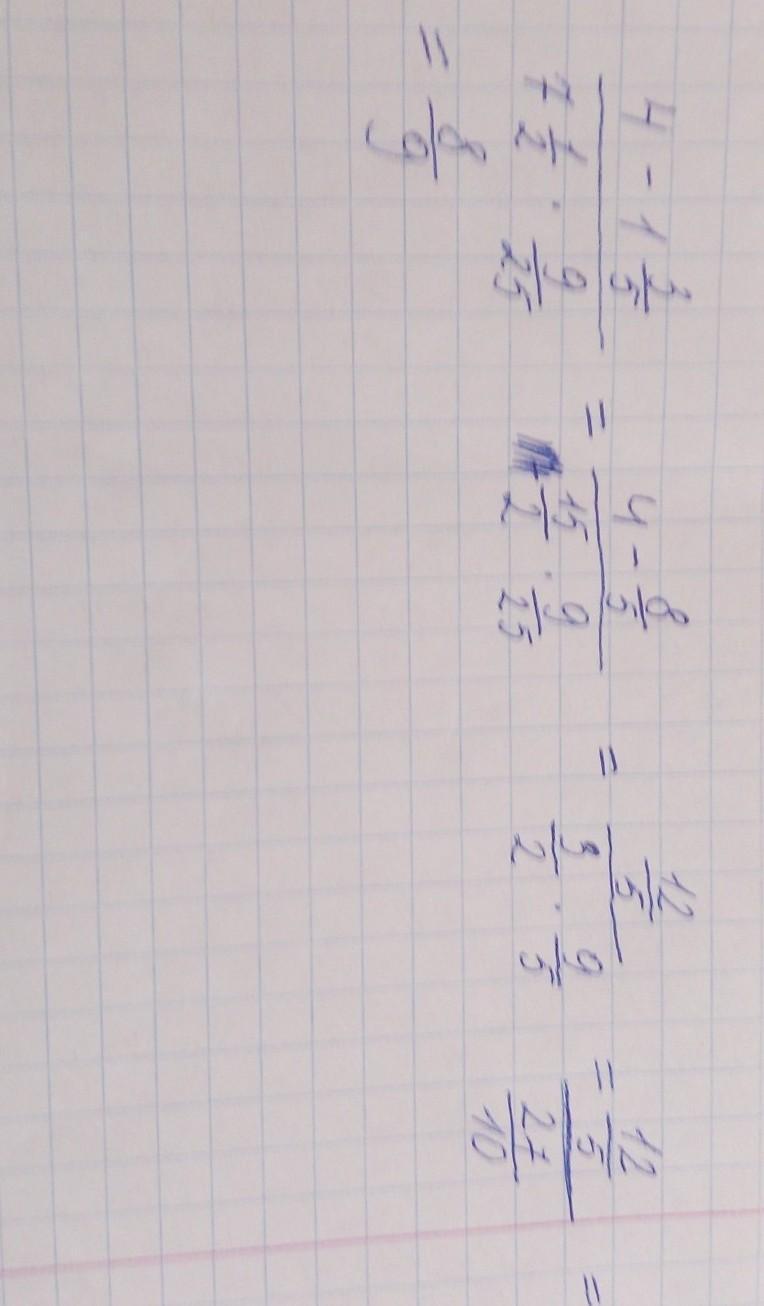 \frac{4 - 1\frac{3}{5}}{7\frac{1}{2} \cdot \frac{9}{25}} = \frac{4 - \frac{8}{5}}{\frac{15}{2} \cdot \frac{9}{25}} = \frac{\frac{12}{5}}{\frac{3}{2} \cdot \frac{9}{5}} = \frac{\frac{12}{5}}{\frac{27}{10}} =
= \frac{8}{9}